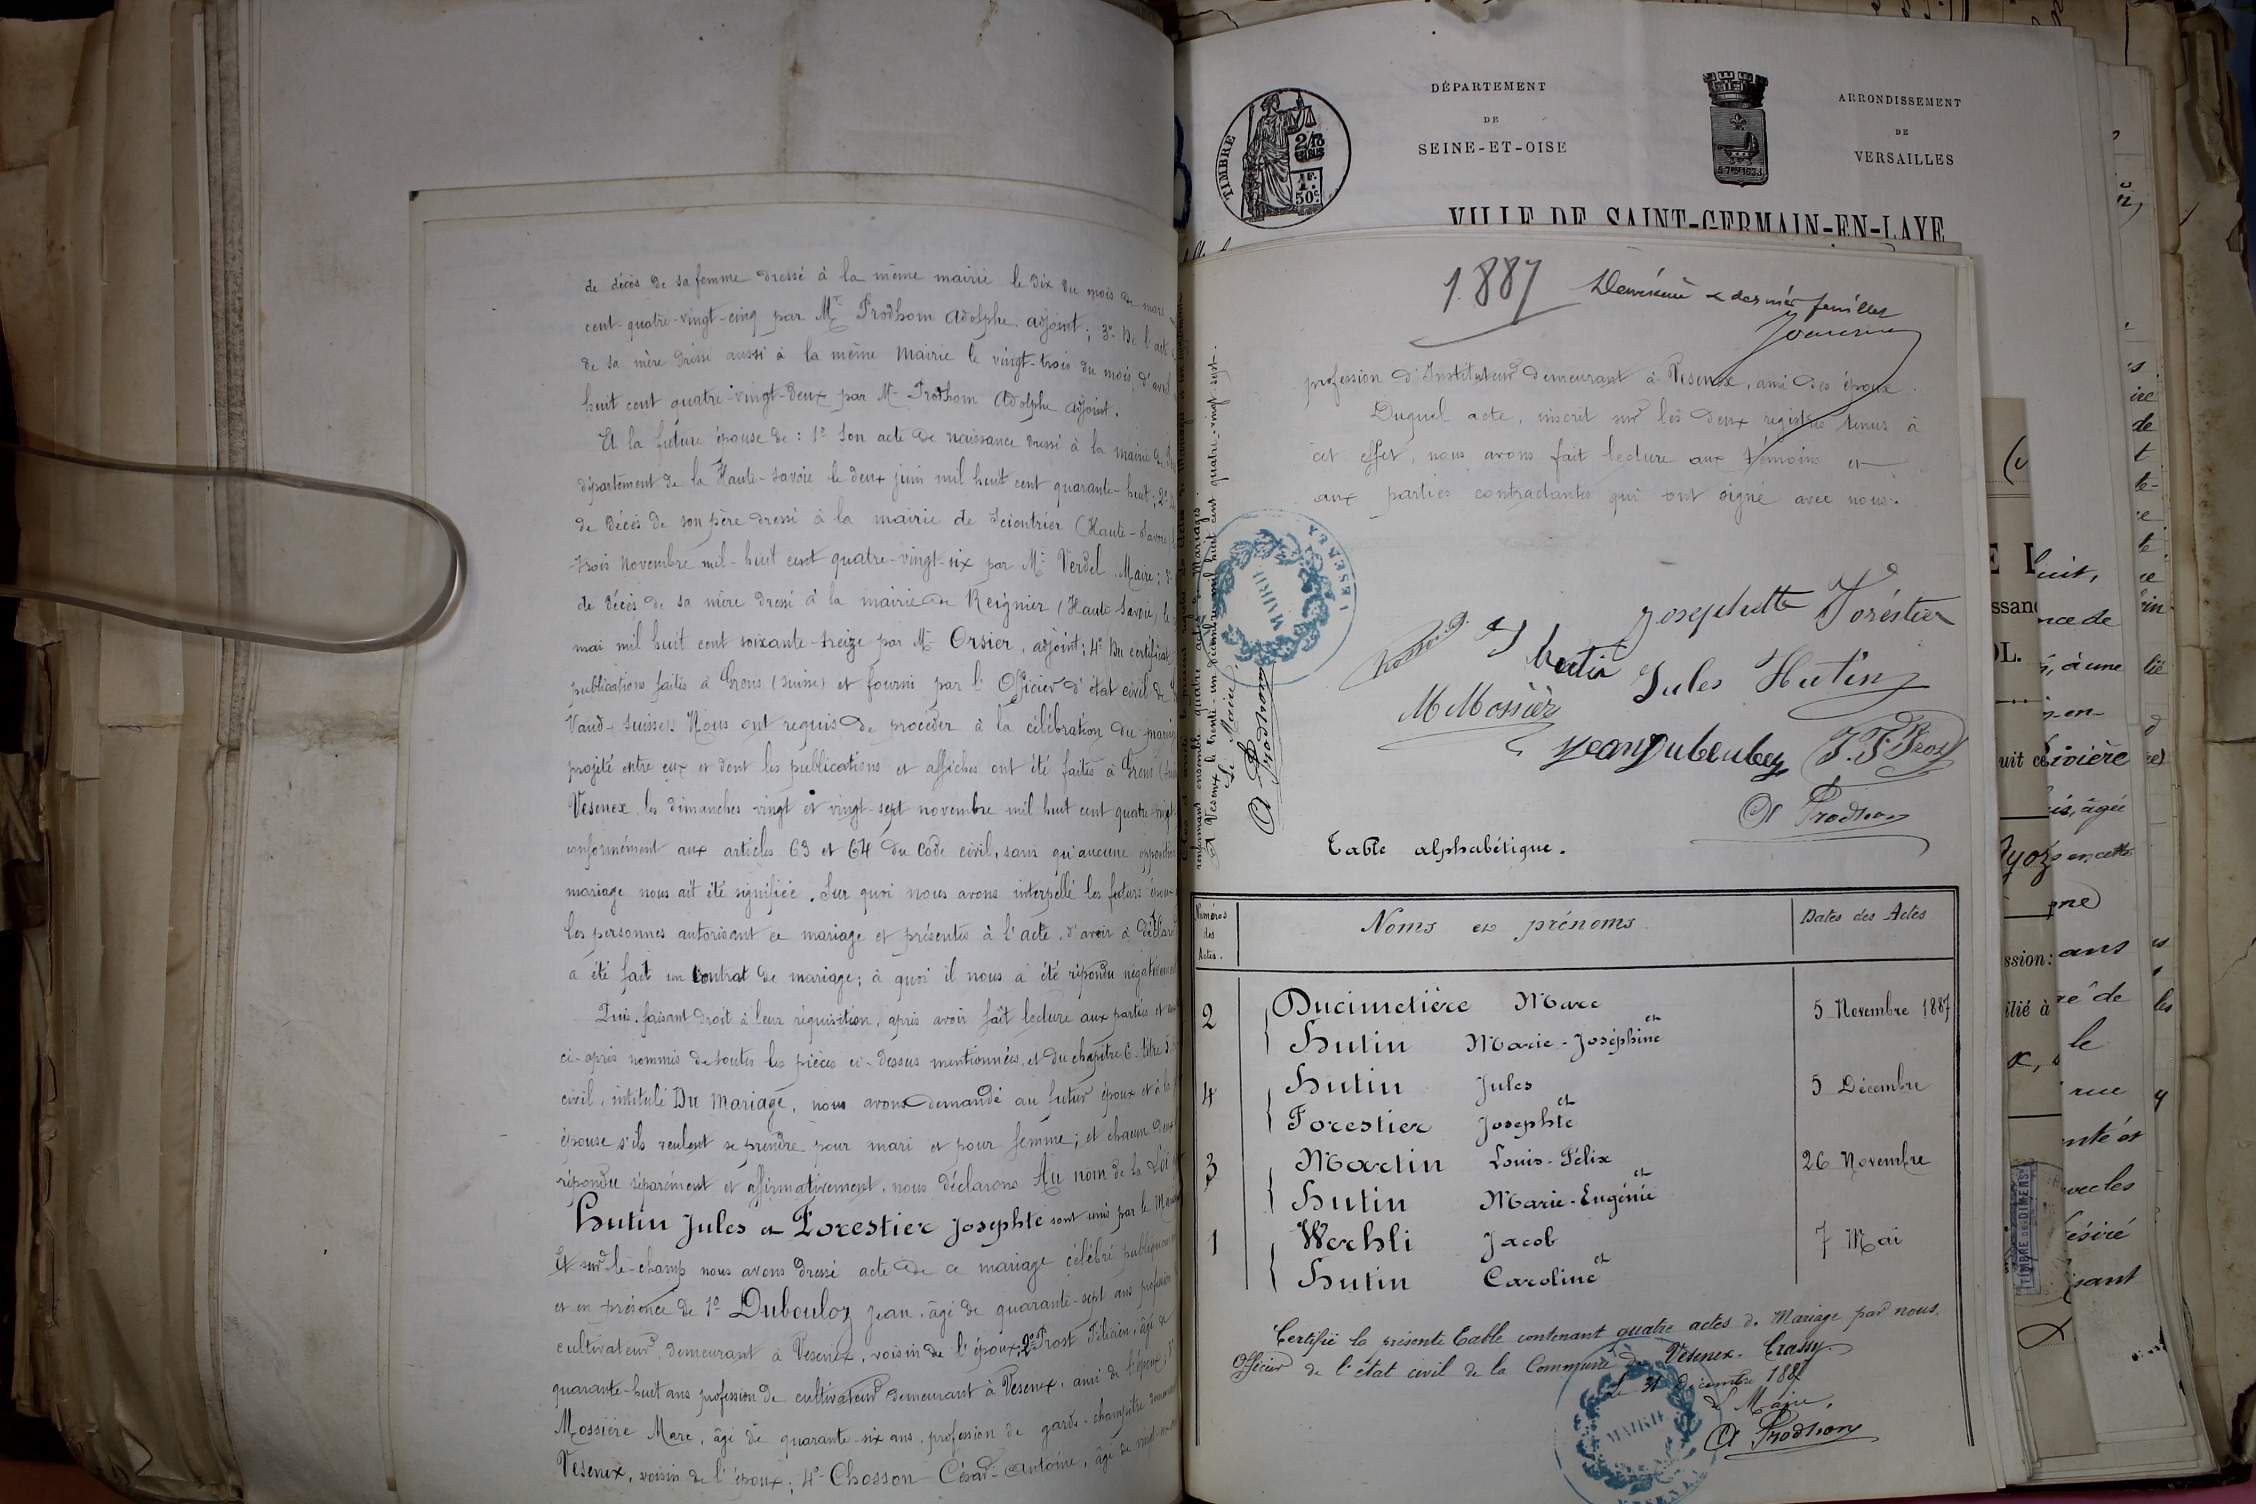 de décès de sa femme dressé à la même mairie le dix du mois de mars
cent-quatre-vingt-cinq par Mr Prodhom Adolphe adjoint; 3º De l'acte
de sa mère dressé aussi à la même Mairie le vingt-trois du mois d'avril
huit cent quatre-vingt-deux par Mr Prodhom Adolphe adjoint.
Et la future épouse de: 1º Son acte de naissance dressé à la mairie de
département de la Haute-Savoie le deux juin mil huit cent quarante-huit; 2º
de décès de son père dressé à la mairie de Scientrier (Haute-Savoie)
trois Novembre mil-huit cent quatre-vingt-six par Mr Verdel Maire;
de décès de sa mère dressé à la mairie de Reignier (Haute Savoie) le
mai mil huit cent soixante-treize par Mr Orsier, adjoint; 4º Du certificat
publications faites à Grens (Suisse) et fourni par l'Officier d'état civil de
Vaud-Suisse. Nous ont requis de procéder à la célébration du mariage
projeté entre eux et dont les publications et affiches ont été faites à Grens
Vesenex les dimanches vingt et vingt-sept novembre mil huit cent quatre-vingt
conformément aux articles 63 et 64 du Code civil, sans qu'aucune opposition
mariage nous ait été signifiée. Sur quoi nous avons interpellé les futurs époux
les personnes autorisant ce mariage et présentes à l'acte, d'avoir à déclarer
a été fait un Contrat de mariage; à quoi il nous a été répondu négativement
Puis, faisant droit à leur réquisition, après avoir fait lecture aux parties et
ci-après nommés de toutes les pièces ci-dessus mentionnées, et du chapitre 6 - titre 5
civil, intitulé Du Mariage, nous avons demandé au futur époux et à la
épouse s'ils veulent se prendre pour mari et pour femme; et chacun d'eux
répondu séparément et affirmativement, nous déclarons Au nom de la Loi
Hutin Jules et Forestier Josephte sont unis par le Mariage
Et sur-le-champ nous avons dressé acte de ce mariage célébré publiquement
et en présence de 1º Dubouloz Jean, âgé de quarante-sept ans profession
cultivateur demeurant à Vesenex, voisin de l'époux; 2º Prost Félicien, âgé de
quarante-huit ans profession de cultivateur demeurant à Vesenex, ami de l'époux;
Mossière Marc, âgé de quarante-six ans, profession de garde-champêtre demeurant
Vesenex, voisin de l'époux; 4º Chosson César-Antoine, âgé de
TIMBRE
2/10
EN SUS
1F.
50C.
DÉPARTEMENT
DE
SEINE-ET-OISE
ARRONDISSEMENT
DE
VERSAILLES
VILLE DE SAINT-GERMAIN-EN-LAYE
1887
Deuxième & dernier feuillet
profession d'Instituteur demeurant à Vesenex, ami des époux.
Duquel acte, inscrit sur les deux registres tenus à
cet effet, nous avons fait lecture aux témoins et
aux parties contractantes qui ont signé avec nous.
renfermant ensemble quatre actes de Mariages.
A Vesenex le trente-un Décembre mil huit cent quatre-vingt-sept.
Le Maire,
A Prodhom
MAIRIE
VESENEX
Josephette Foréstier
J Hutin
Jules Hutin
M Mossière
Jean Dubouloz
J. F. Prost
A Prodhom
Table alphabétique.
Numéros des Actes.
Noms et prénoms
Dates des Actes
2 Ducimetière Marc et
Hutin Marie-Joséphine
5 Novembre 1887
4 Hutin Jules et
Forestier Josephte
5 Décembre
3 Martin Louis-Félix et
Hutin Marie-Eugénie
26 Novembre
1 Werhli Jacob et
Hutin Caroline
7 Mai
Certifié la présente Table contenant quatre actes de Mariage par nous
Officier de l'état civil de la Commune de Vesenex-Crassy
Le 31 décembre 1887
Le Maire,
A Prodhom
MAIRIE
TIMBRE DE DIMENS